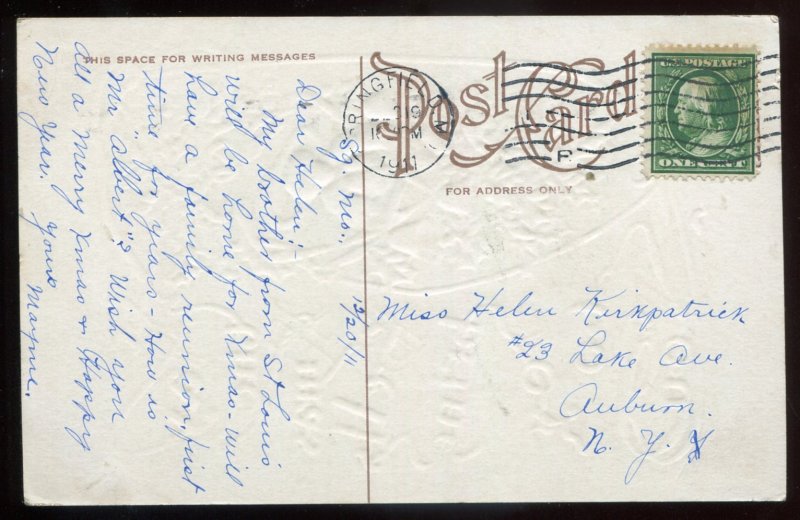 THIS SPACE FOR WRITING MESSAGES
Post Card
FOR ADDRESS ONLY
SPRINGFIELD, MO.
1911
U.S. POSTAGE
ONE CENT
Sp. Mo., 12/20/11
Dear Helen:-
My brother from St Louis
will be home for Xmas - will
have a family reunion, first
time for years - How is
Mr "Albert"? Wish you
all a Merry Xmas & Happy
New Year. Yours
Mayme.
Miss Helen Kirkpatrick
#23 Lake Ave.
Auburn.
N. Y.